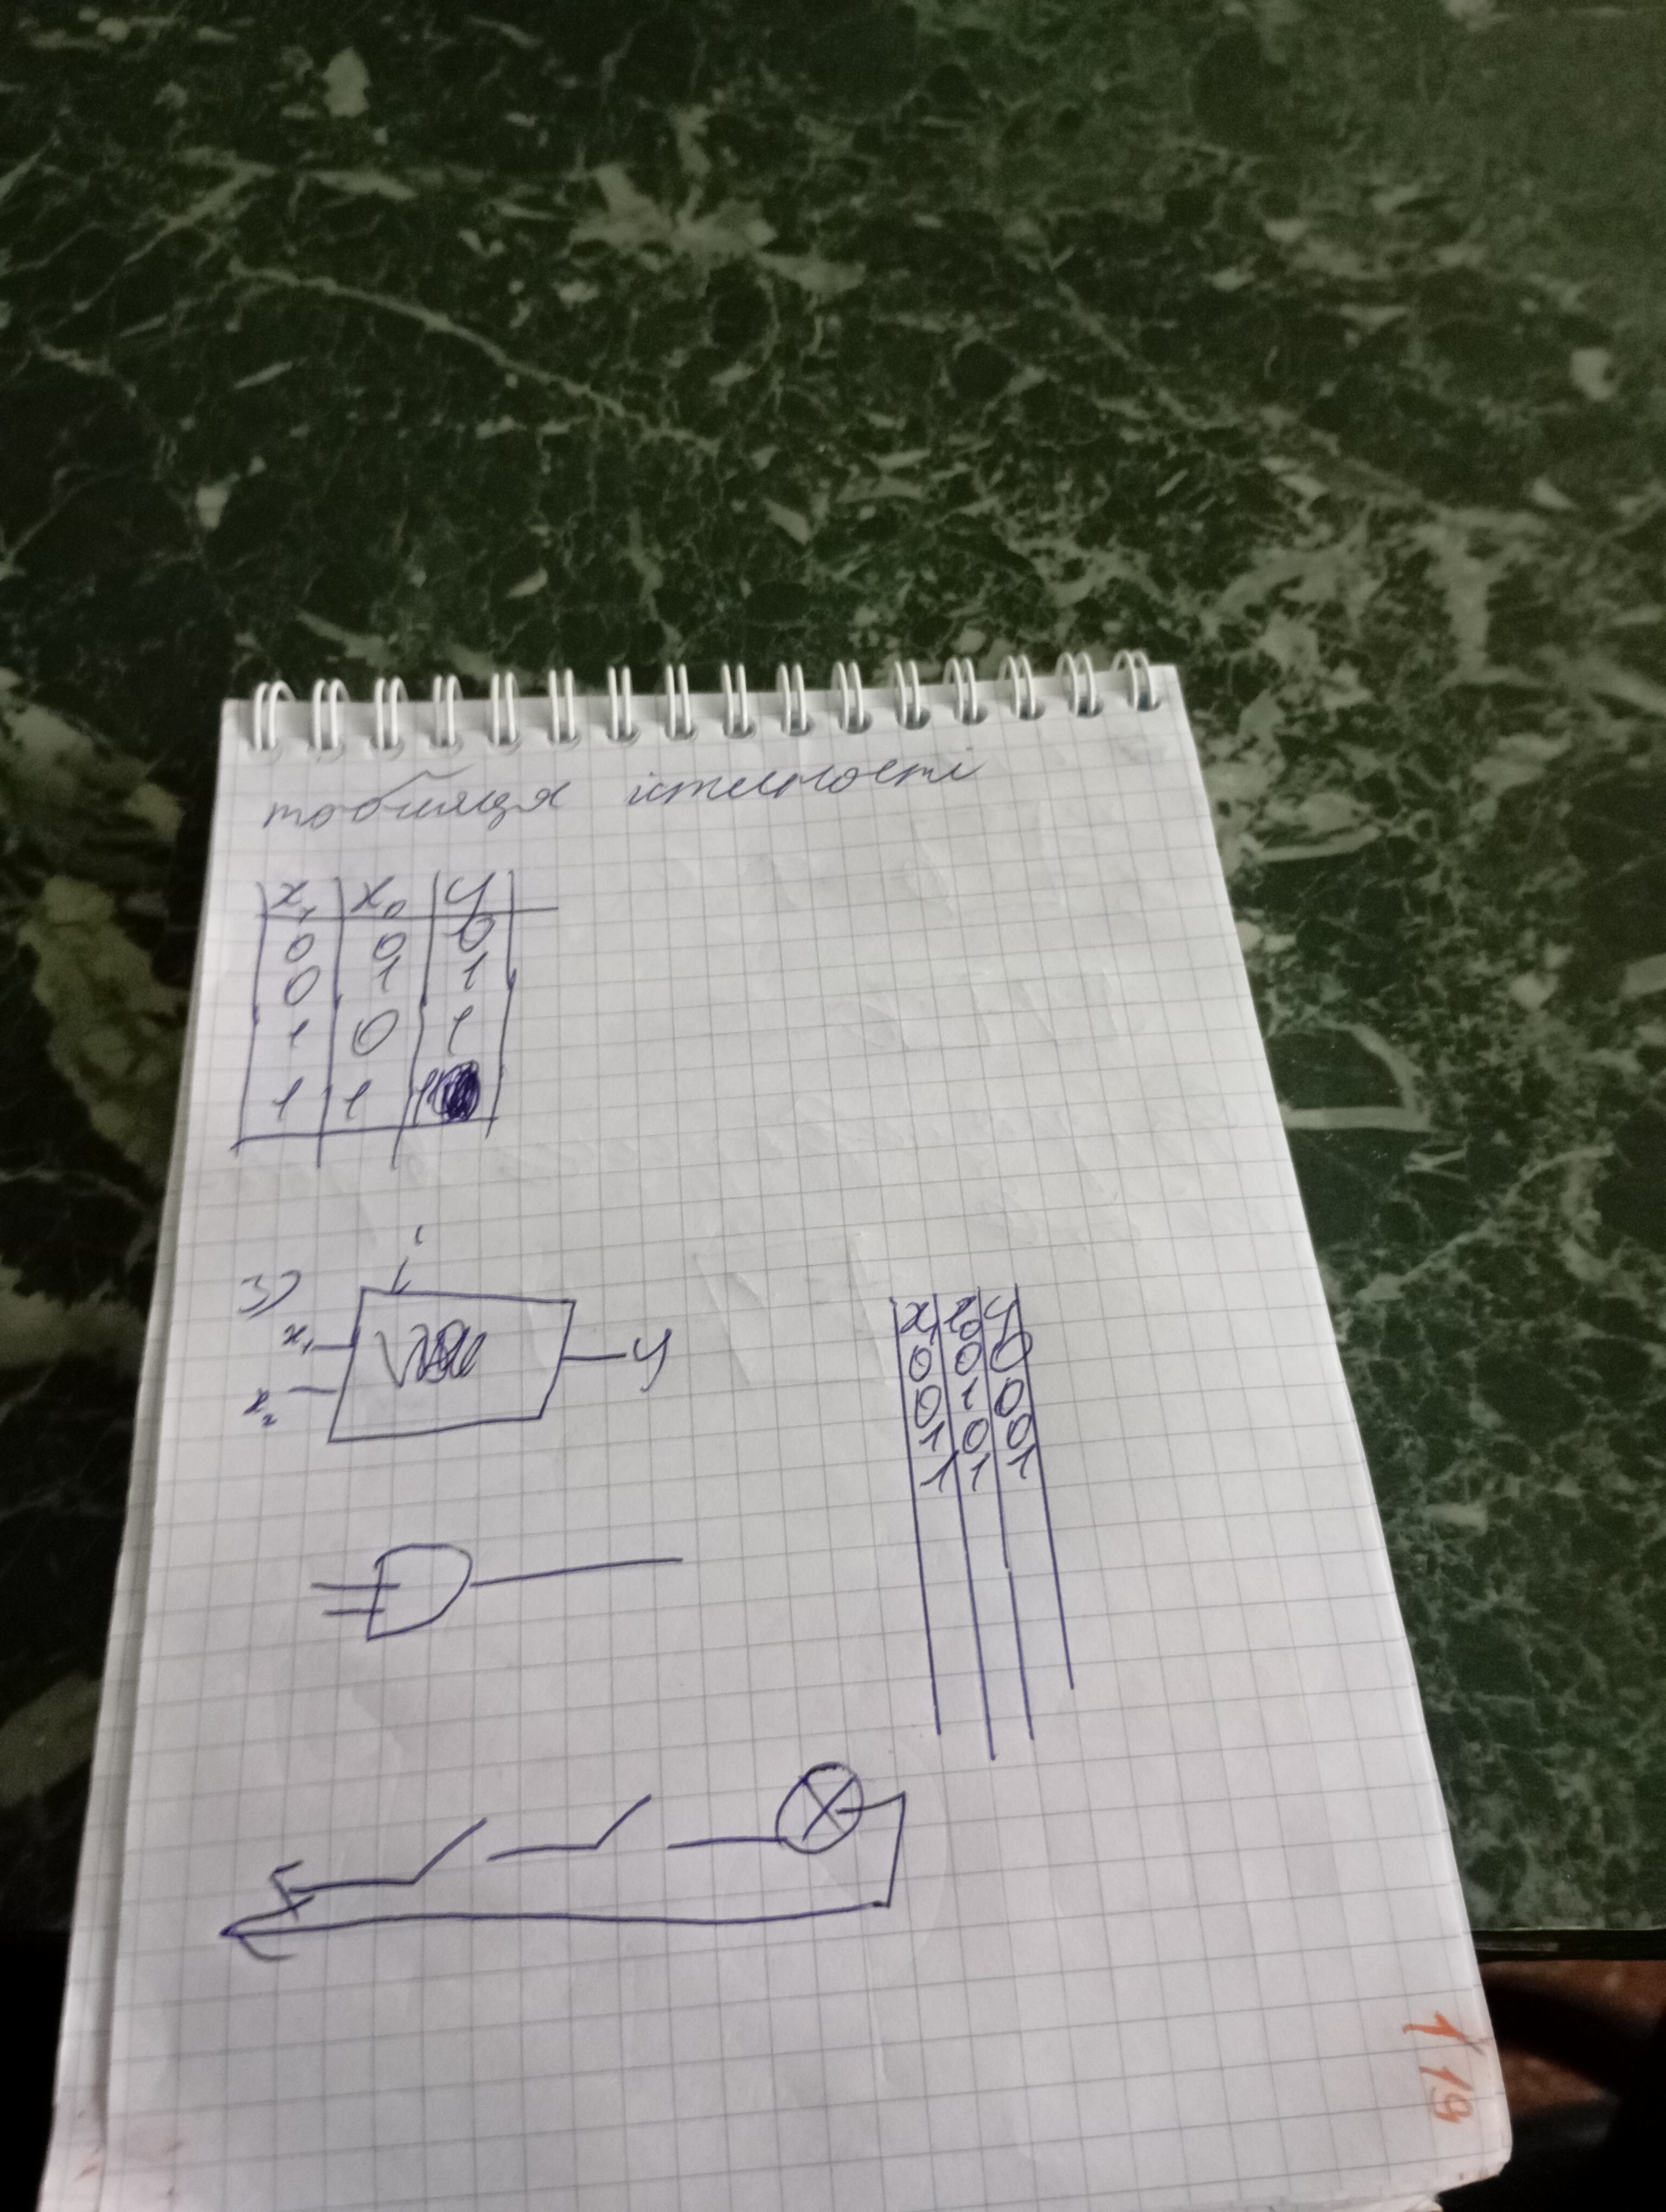 таблиця істиності
x₁ x₀ y
0 0 0
0 1 1
1 0 1
1 1 1
i
3)
x₁ y
x₂
x₁ x₀ y
0 0 0
0 1 0
1 0 0
1 1 1
119